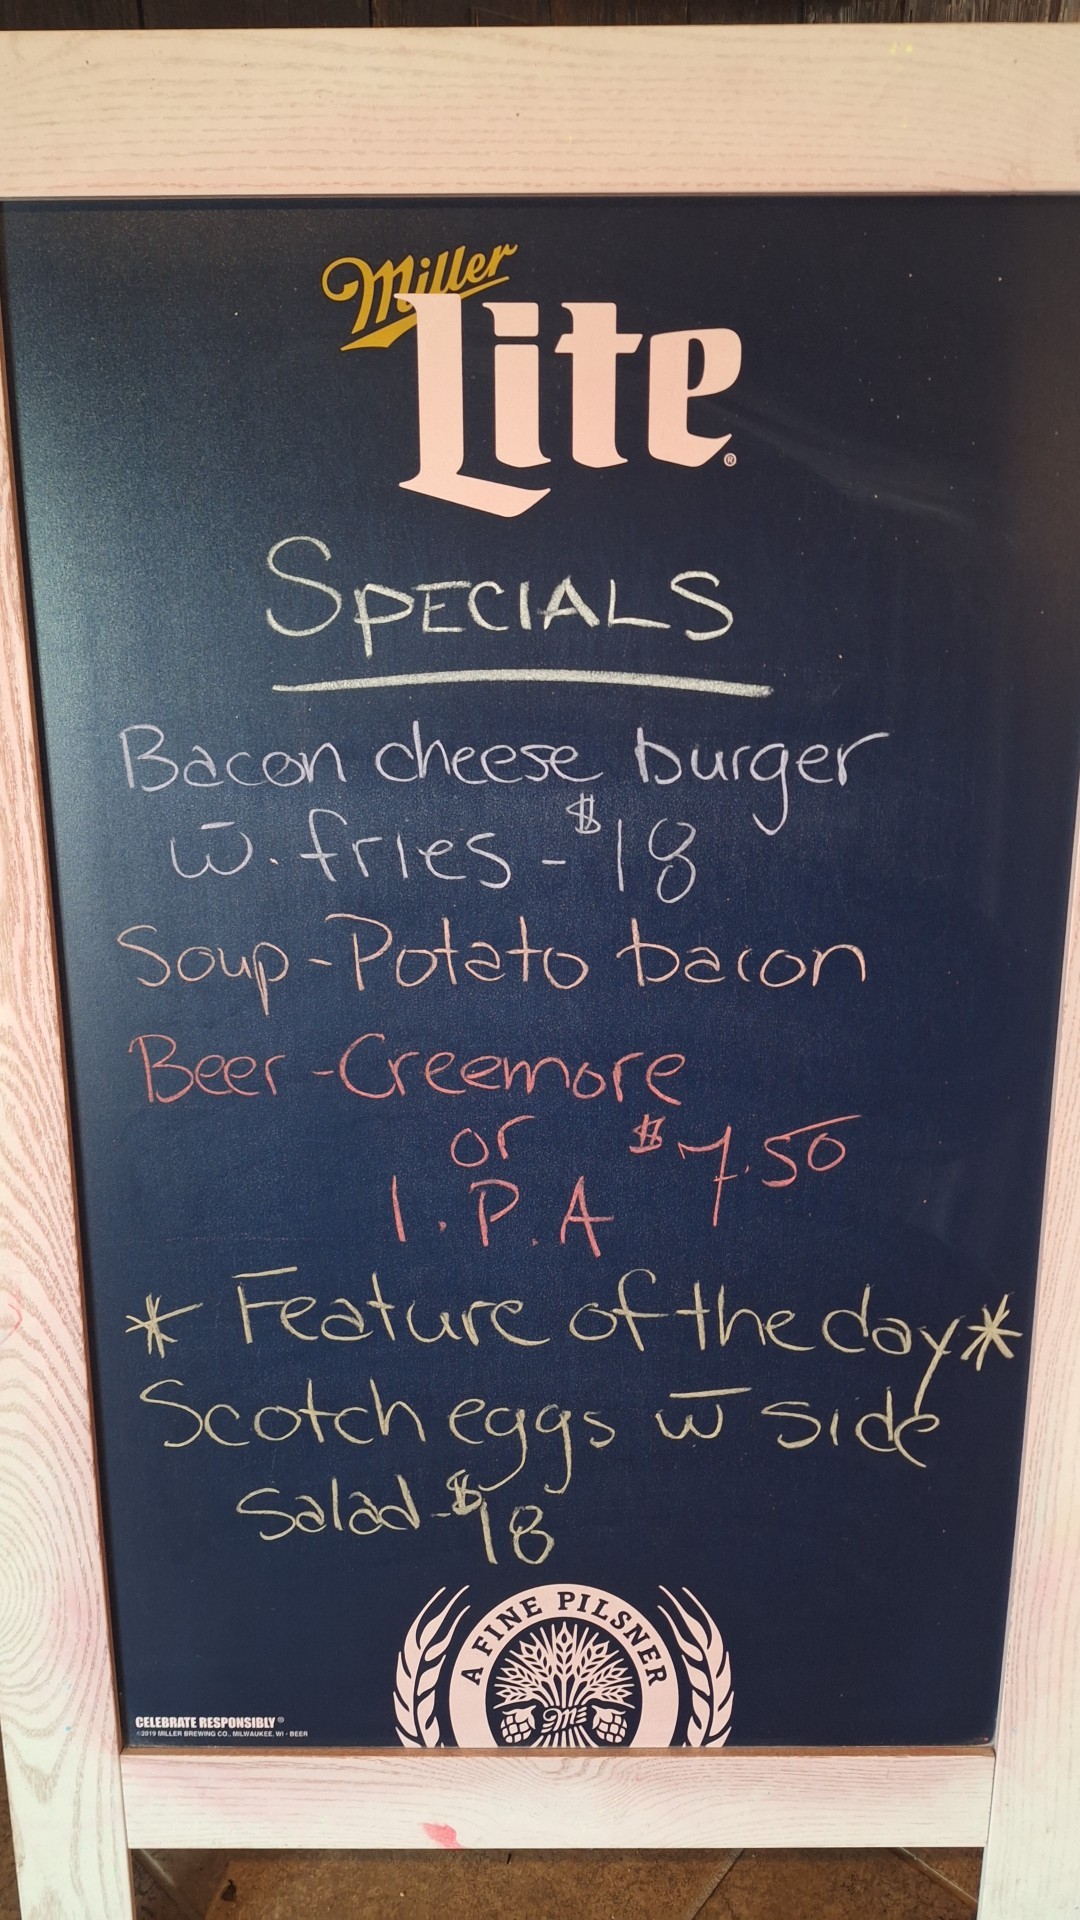 Miller
Lite®
SPECIALS
Bacon cheese burger
w̄. fries - $18
Soup - Potato bacon
Beer - Creemore
or $7.50
I.P.A
* Feature of the day *
Scotch eggs w̄ side
salad - $18
A FINE PILSNER
M
CELEBRATE RESPONSIBLY®
©2019 MILLER BREWING CO., MILWAUKEE, WI • BEER